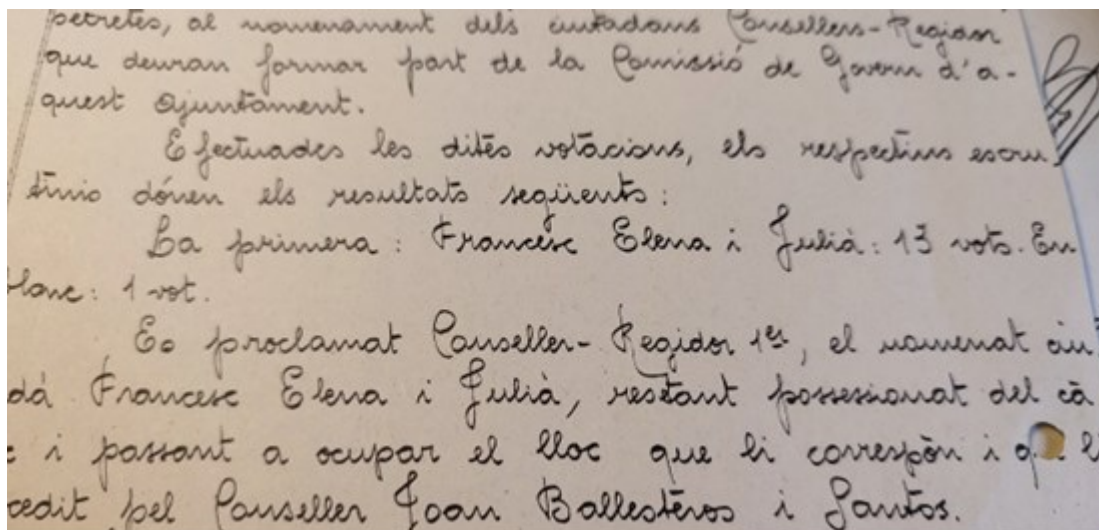 secretes, al nomenament dels ciutadans Consellers-Regidors
que deuran formar part de la Comissió de Govern d'a-
quest Ajuntament.
Efectuades les dites votacions, els respectius escru-
tinis dónen els resultats següents:
La primera: Francesc Elena i Julià: 13 vots. En
blanc: 1 vot.
Es proclamat Conseller-Regidor 1er, el nomenat ciu
dà Francesc Elena i Julià, restant possessionat del cà
c i passant a ocupar el lloc que li correspòn i que li
cedit pel Conseller Joan Ballestèros i Santos.